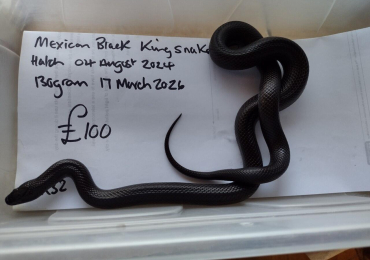 Mexican Black King snake
Hatch 04 August 2024
130gram 17 March 2026
£100